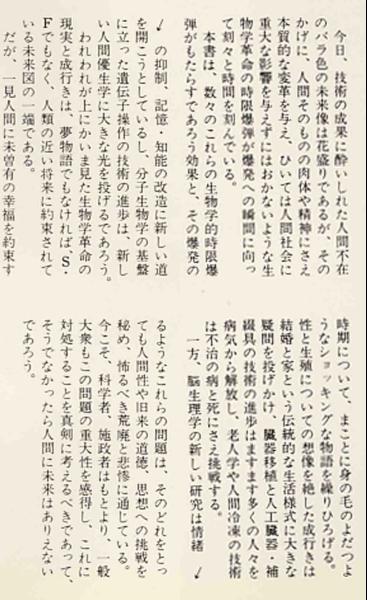 今日、技術の成果に酔いしれた人間不在
のバラ色の未来像は花盛りであるが、その
かげに、人間そのものの肉体や精神にさえ
本質的な変革を与え、ひいては人間社会に
重大な影響を与えずにはおかないような生
物学革命の時限爆弾が爆発への瞬間に向っ
て刻々と時間を刻んでいる。
本書は、数々のこれらの生物学的時限爆
弾がもたらすであろう効果と、その爆発の
時期について、まことに身の毛のよだつよ
うなショッキングな物語を繰りひろげる。
性と生殖についての想像を絶した成行きは
結婚と家という伝統的な生活様式に大きな
疑問を投げかけ、臓器移植と人工臓器・補
綴具の技術の進歩はますます多くの人々を
病気から解放し、老人学や人間冷凍の技術
は不治の病と死にさえ挑戦する。
一方、脳生理学の新しい研究は情緒 ↙
↙ の抑制、記憶・知能の改造に新しい道
を開こうとしているし、分子生物学の基盤
に立った遺伝子操作の技術の進歩は、新し
い人間優生学に大きな光を投げるであろう。
われわれが上にかいま見た生物学革命の
現実と成行きは、夢物語でもなければ、S・
Fでもなく、人類の近い将来に約束されて
いる未来図の一端である。
だが、一見人間に未曽有の幸福を約束す
るようなこれらの問題は、そのどれをとっ
ても人間性や旧来の道徳、思想への挑戦を
秘め、怖るべき荒廃と悲惨に通じている。
今こそ、科学者、施政者はもとより、一般
大衆もこの問題の重大性を感得し、これに
対処することを真剣に考えるべきであって、
そうでなかったら人間に未来はありえない
であろう。